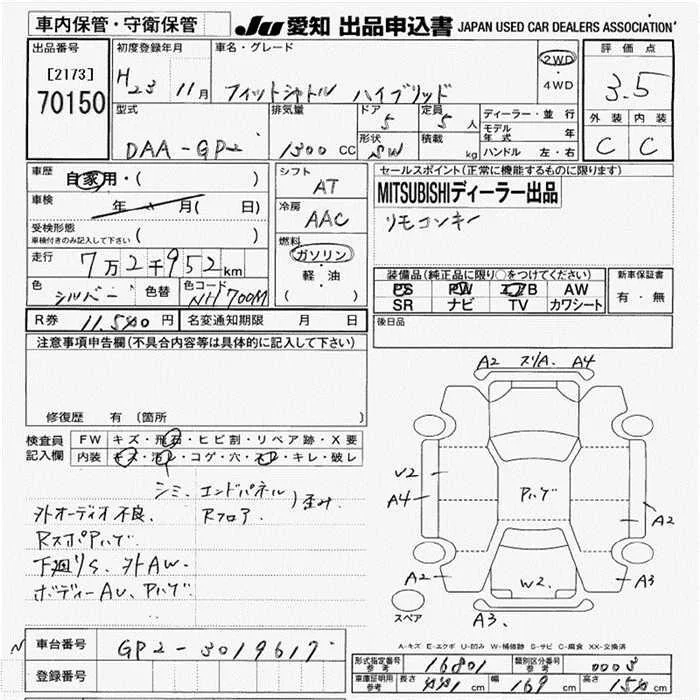 車内保管・守衛保管
JU 愛知 出品申込書 JAPAN USED CAR DEALERS ASSOCIATION
出品番号
[2173]
70150
初度登録年月
H23 11月
車名・グレード
フィットシャトル ハイブリッド
2WD
・
4WD
評価点
3.5
外装 内装
C C
型式
DAA-GP2
排気量
1300 CC
ドア
5
定員
5 人
形状
SW
積載
kg
ディーラー・並行
モデル年式 年
ハンドル 左・右
車歴
自家用・( )
車検
年 月( 日)
受検形態
車検付きのみ記入して下さい ( )
走行
7万2千952km
色
シルバー
色替
色コード
NH700M
シフト
AT
冷房
AAC
燃料
ガソリン
軽・油
( )
セールスポイント(正常に機能するものに限ります)
MITSUBISHIディーラー出品
リモコンキー
装備品(純正品に限り○をつけてください)
PS PW エアB AW
SR ナビ TV カワシート
新車保証書
有・無
R券 11.540 円
名変通知期限 月 日
後日品
注意事項申告欄(不具合内容等は具体的に記入して下さい)
修復歴 有 (箇所 )
検査員記入欄
FW キズ・飛石・ヒビ割・リペア跡・X要
内装 キズ・汚レ・コゲ・穴・スレ・キレ・破レ
シミ、エンドパネル
Rフロア
)歪み
外オーディオ不良、
RスポPハゲ
下廻リS、外AW、
ボディーAU、Pハゲ
A2 スリA. A4
U2
A4
Pハゲ
A2
A2
W2.
A3
A3.
スペア
A-キズ E-エクボ U-凹み W-補修跡 S-サビ C-腐食 XX-交換済
車台番号
GP2-3019617
登録番号
形式指定番号
参考
16801
類別区分番号
参考
0003
車庫証明用
参考
長さ 441 cm
幅 169 cm
高さ 154 cm